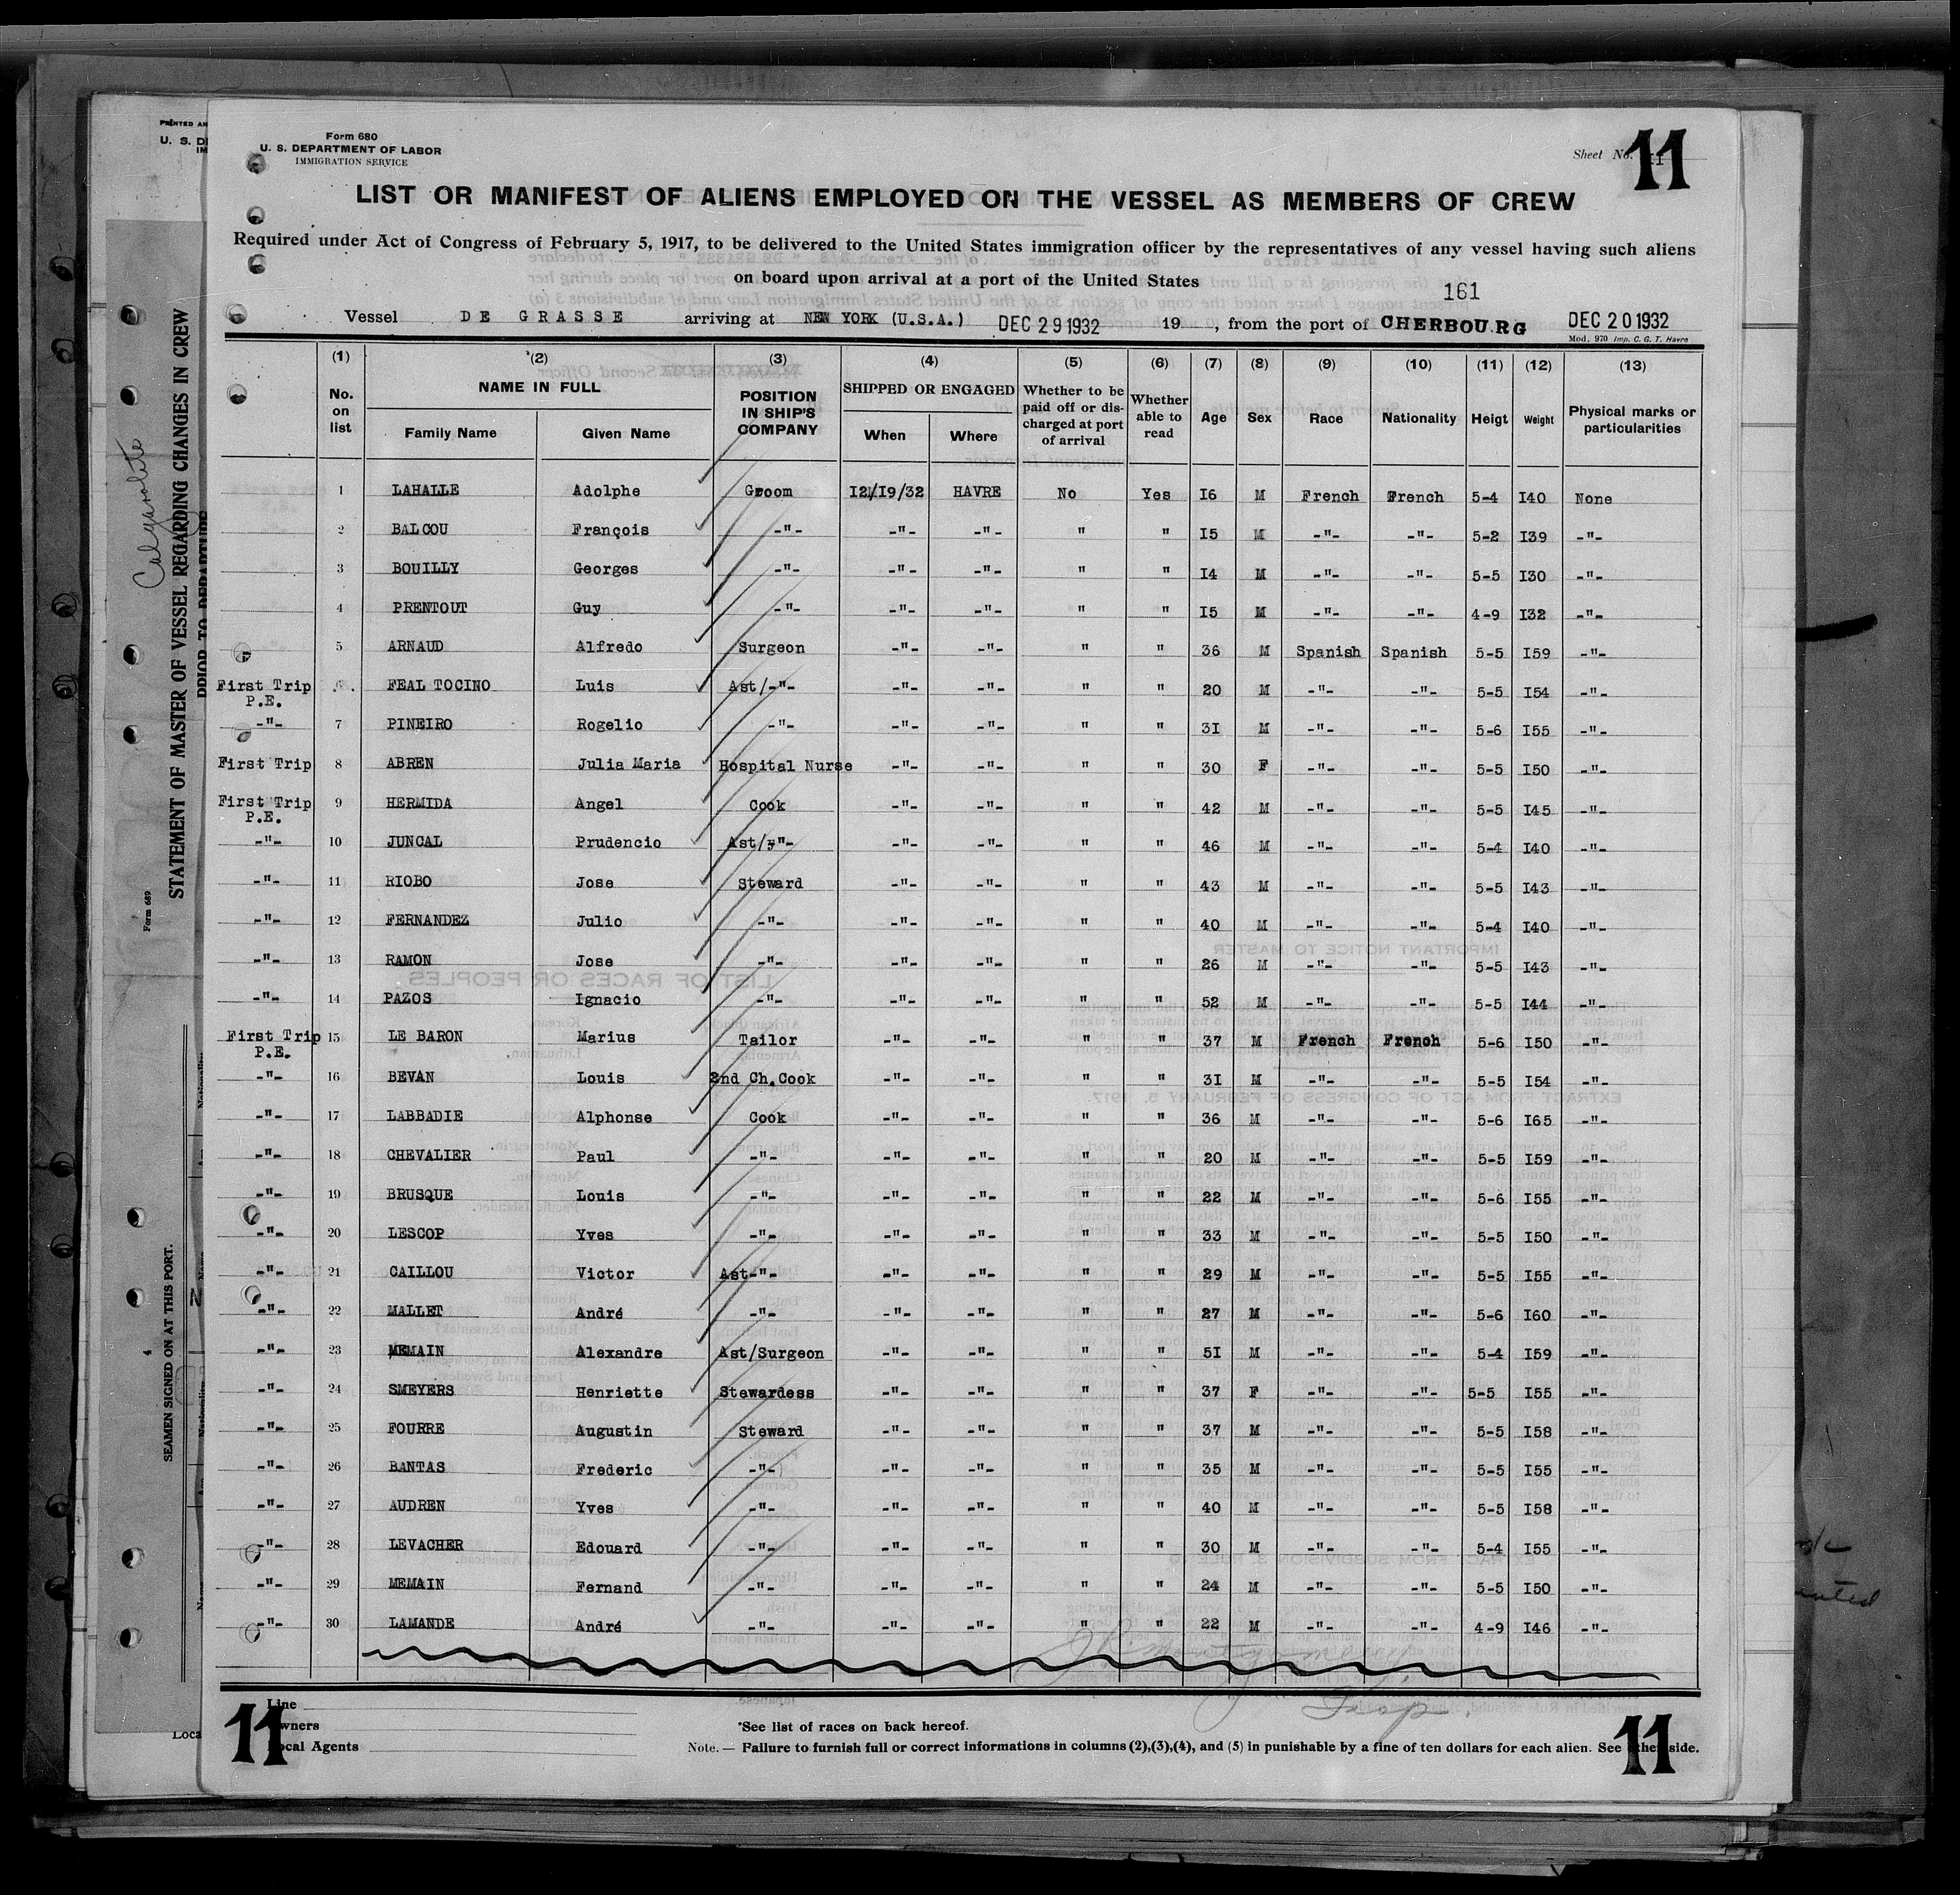 Form 680
U. S. DEPARTMENT OF LABOR
IMMIGRATION SERVICE
Sheet No. 11
LIST OR MANIFEST OF ALIENS EMPLOYED ON THE VESSEL AS MEMBERS OF CREW
Required under Act of Congress of February 5, 1917, to be delivered to the United States immigration officer by the representatives of any vessel having such aliens
on board upon arrival at a port of the United States
161
Vessel DE GRASSE arriving at NEW YORK (U.S.A.) DEC 29 1932 19 , from the port of CHERBOURG DEC 20 1932
Mod. 970 Imp. C. G. T. Havre
(1) (2) (3) (4) (5) (6) (7) (8) (9) (10) (11) (12) (13)
No. on list NAME IN FULL Family Name Given Name POSITION IN SHIP'S COMPANY SHIPPED OR ENGAGED When Where Whether to be paid off or discharged at port of arrival Whether able to read Age Sex Race Nationality Heigt Weight Physical marks or particularities
1 LAHALLE Adolphe Groom I2/I9/32 HAVRE No Yes I6 M French French 5-4 I40 None
2 BALCOU François -"- -"- -"- " " I5 M -"- -"- 5-2 I39 -"-
3 BOUILLY Georges -"- -"- -"- " " I4 M -"- -"- 5-5 I30 -"-
4 PRENTOUT Guy -"- -"- -"- " " I5 M -"- -"- 4-9 I32 -"-
5 ARNAUD Alfredo Surgeon -"- -"- " " 36 M Spanish Spanish 5-5 I59 -"-
First Trip P.E. 6 FEAL TOCINO Luis Ast/-"- -"- -"- " " 20 M -"- -"- 5-5 I54 -"-
-"- 7 PINEIRO Rogelio -"- -"- -"- " " 3I M -"- -"- 5-6 I55 -"-
First Trip 8 ABREN Julia Maria Hospital Nurse -"- -"- " " 30 F -"- -"- 5-5 I50 -"-
First Trip P.E. 9 HERMIDA Angel Cook -"- -"- " " 42 M -"- -"- 5-5 I45 -"-
-"- 10 JUNCAL Prudencio Ast/-"- -"- -"- " " 46 M -"- -"- 5-4 I40 -"-
-"- 11 RIOBO Jose Steward -"- -"- " " 43 M -"- -"- 5-5 I43 -"-
-"- 12 FERNANDEZ Julio -"- -"- -"- " " 40 M -"- -"- 5-4 I40 -"-
-"- 13 RAMON Jose -"- -"- -"- " " 26 M -"- -"- 5-5 I43 -"-
-"- 14 PAZOS Ignacio -"- -"- -"- " " 52 M -"- -"- 5-5 I44 -"-
First Trip P.E. 15 LE BARON Marius Tailor -"- -"- " " 37 M French French 5-6 I50 -"-
-"- 16 BEVAN Louis 2nd Ch.Cook -"- -"- " " 3I M -"- -"- 5-5 I54 -"-
-"- 17 LABBADIE Alphonse Cook -"- -"- " " 36 M -"- -"- 5-6 I65 -"-
-"- 18 CHEVALIER Paul -"- -"- -"- " " 20 M -"- -"- 5-5 I59 -"-
-"- 19 BRUSQUE Louis -"- -"- -"- " " 22 M -"- -"- 5-6 I55 -"-
-"- 20 LESCOP Yves -"- -"- -"- " " 33 M -"- -"- 5-5 I50 -"-
-"- 21 CAILLOU Victor Ast-"- -"- -"- " " 29 M -"- -"- 5-5 I55 -"-
-"- 22 MALLET André -"- -"- -"- " " 27 M -"- -"- 5-6 I60 -"-
-"- 23 MEMAIN Alexandre Ast/Surgeon -"- -"- " " 5I M -"- -"- 5-4 I59 -"-
-"- 24 SMEYERS Henriette Stewardess -"- -"- " " 37 F -"- -"- 5-5 I55 -"-
-"- 25 FOURRE Augustin Steward -"- -"- " " 37 M -"- -"- 5-5 I58 -"-
-"- 26 BANTAS Frederic -"- -"- -"- " " 35 M -"- -"- 5-5 I55 -"-
-"- 27 AUDREN Yves -"- -"- -"- " " 40 M -"- -"- 5-5 I58 -"-
-"- 28 LEVACHER Edouard -"- -"- -"- " " 30 M -"- -"- 5-4 I55 -"-
-"- 29 MEMAIN Fernand -"- -"- -"- " " 24 M -"- -"- 5-5 I50 -"-
-"- 30 LAMANDE André -"- -"- -"- " " 22 M -"- -"- 4-9 I46 -"-
Line
Owners
Local Agents
11
11
*See list of races on back hereof.
Note. — Failure to furnish full or correct informations in columns (2),(3),(4), and (5) in punishable by a fine of ten dollars for each alien. See other side.
STATEMENT OF MASTER OF VESSEL REGARDING CHANGES IN CREW
PRIOR TO DEPARTURE
Form 689
SEAMEN SIGNED ON AT THIS PORT.